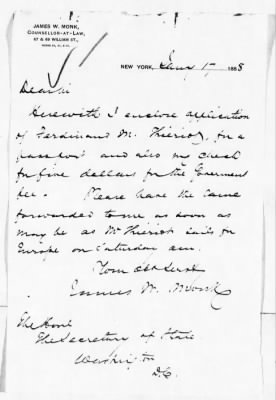 JAMES W. MONK,
COUNSELLOR-AT-LAW,
67 & 69 WILLIAM ST.,
NEW YORK, 1888
Dear Sir
Herewith I enclose application
of Ferdinand M. Thieriot, for a
passport and also my check
for five dollars for the Government
fee. Please have the same
forwarded to me as soon as
may be as Mr Thieriot sails for
Europe on Saturday
Your Obt Servt
James W. Monk
The Honl
The Secretary of State
Washington
D.C.